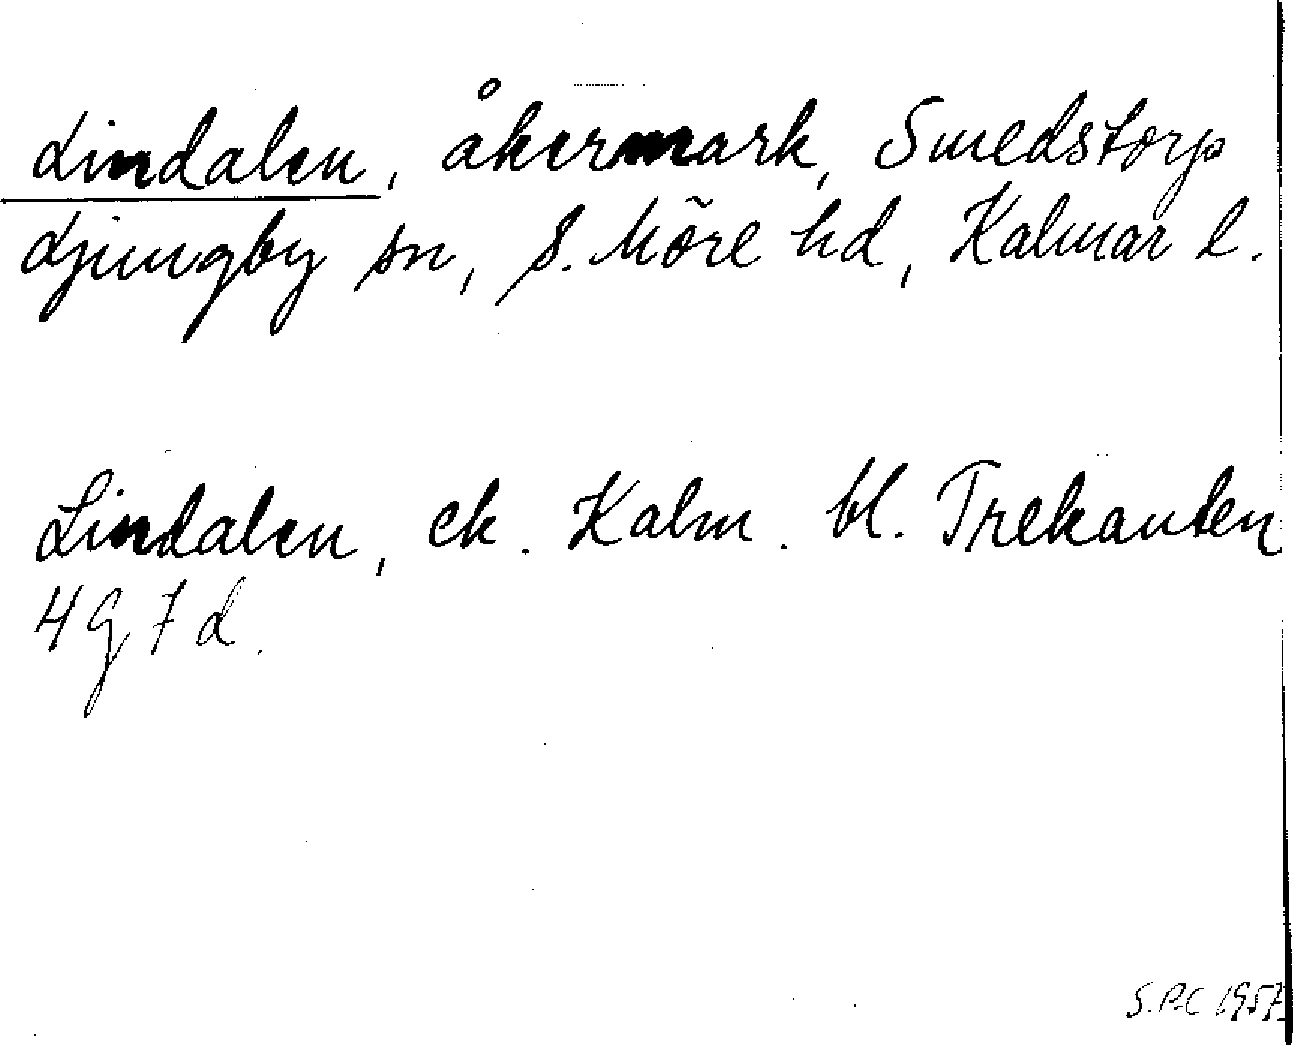 Lindalen, åkermark, Smedstorp
Ljungby sn, S. Möre hd, Kalmar l.
Lindalen, ek. Kalm. bl. Trekanten
4G7d.
S.P-C 1957